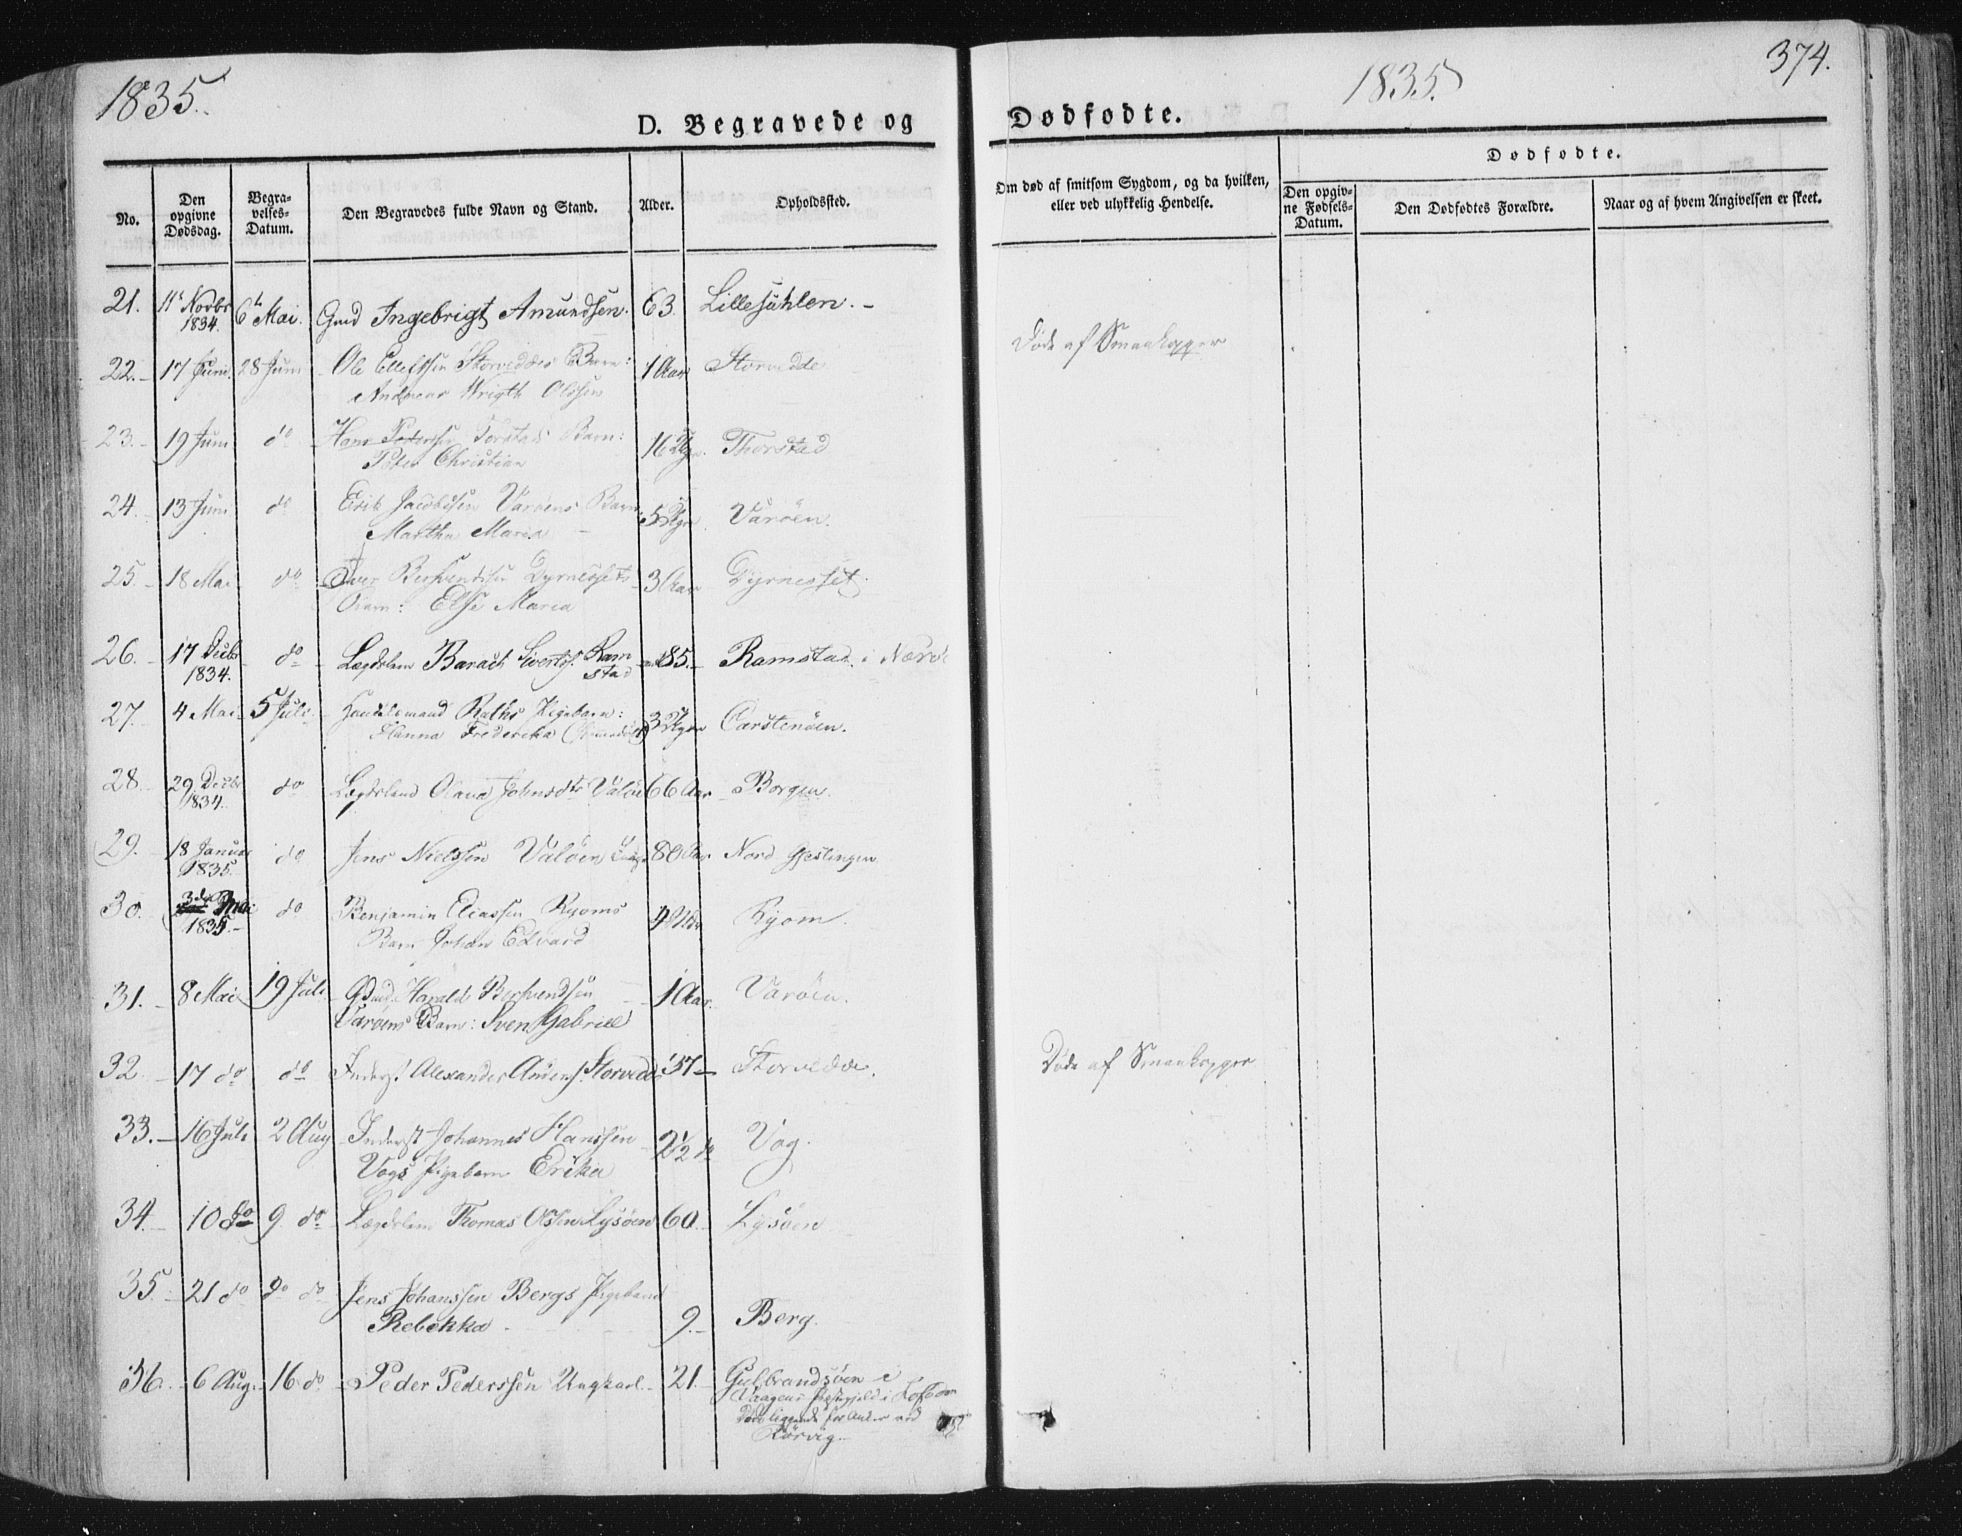 1835.
D. Begravede og
No.
Den opgivne Dødsdag.
Begravelses-Datum.
Den Begravedes fulde Navn og Stand.
Alder.
Opholdssted.
21. 11 Novbr 1834. 6 Mai. Gmd Ingebrigt Amundsen. 63. Lillesuhlen. –
22. – 17 Juni. 28 Juni Ole Ellefssen Storveddes Barn: 1 Aar Storvedde
Andreas Wrigth Olssen
23. – 19 Juni do Hans Pederssen Torstads Barn: 16 Thorstad
Peter Christian
24. 13 Juni do Erik Jacobssen Varøens Barn 5 Varøen.
Martha Maria –
25. – 18 Mai do Berhventsen Dyrnessets 3 Aar Dyrnesset.
Barn: Else Maria
26. – 17 Decbr 1834. do Lægdslem Barach Sivertss. Ramstad 85. – Ramstad i Nærø
27. 4 Mai 5 Juli Handelsmand Raths Pigebarn: 3 Carstenøen.
Hanna Frederika
28. 29 Decbr 1834. do Lægdslem Olava Johnsdtr Valøe 66 Aar Borgen.
29. 18 Januar 1835. do Jens Nielssen Valøen 80 Aar Nord Gjeslingen
30. 3die Mai 1835. – do Benjamin Eliassen Ryoms Ryom.
Barn Johan Edvard
31. – 8 Mai 19 Juli Gmd. Harald Berhventsen 1 Aar. Varøen.
Varøens Barn: Sven Gabriel
32. – 17 do do Inderst Alexander Storvedde 57 – Storvedde.
33. – 16 Juli 2 Aug Inderst Johannes Hanssen 2 1/2 do Vog.
Vogs Pigebarn Erika
34. – 10 do 9 do Lægdslem Thomas Olssen Lysøen 60. Lysøen
35. – 21 do do do Jens Johanssen Bergs Pigebarn
Rebekka – 9. – Berg.
36. – 6 Aug. 16 do Peder Pederssen Ungkarl – 21. Gulbrandsøen i
Vaagens Præstegjeld i Lofoden
Døde liggende for Anker ved
Rørvig. –
1835.
374.
Dødfødte.
Om død af smitsom Sygdom, og da hvilken, eller ved ulykkelig Hendelse.
Dødfødte.
Den opgivne Fødsels-Datum.
Den Dødfødtes Forældre.
Naar og af hvem Angivelsen er skeet.
Døde af Smaakopper
Døde af Smaakopper